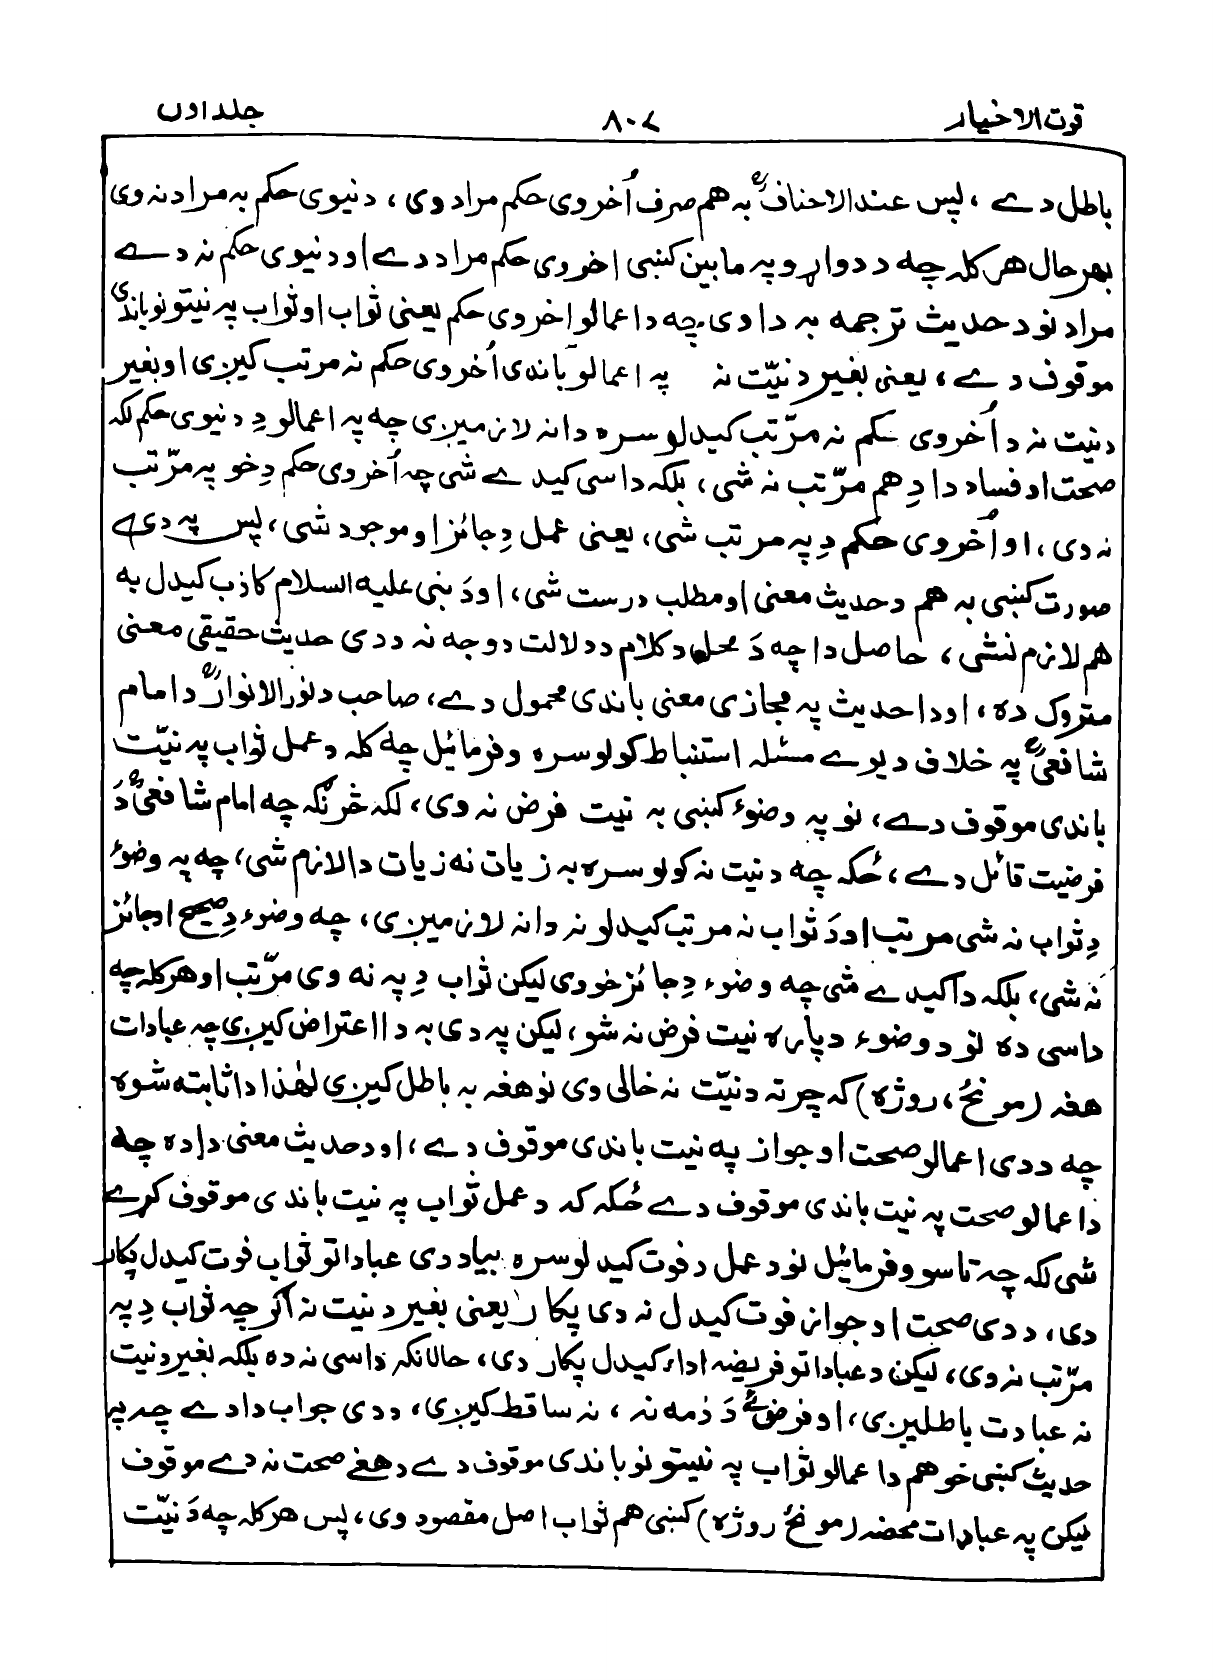 قوت الاخیار ۸۰۷ جلد اول
باطل دے ، پس عند الاحنافؒ به هم صرف اُخروی حکم مراد وی ، دنیوی حکم به مراد نه وی
بهر حال هر کله چه د دواړو په مابین کښی اخروی حکم مراد دے او دنیوی حکم نه دے
مراد نو د حدیث ترجمه به داوی چه د اعمالو اخروی حکم یعنی ثواب او ثواب په نیتونو باندی
موقوف دے ، یعنی بغیر د نیّت نه په اعمالو باندی اُخروی حکم نه مرتب کیږی او بغیر
د نیت نه د اُخروی حکم نه مرّتب کیدلو سره دا نه لازمیږی چه په اعمالو دِ دنیوی حکم لکه
صحت او فساد دا دِ هم مرّتب نه شی ، بلکه داسی کیدے شی چه اُخروی حکم دِ خو په مرّتب
نه دی ، او اُخروی حکم دِ په مرتب شی ، یعنی عمل دِ جائز او موجود شی ، پس په دی
صورت کښی به هم د حدیث معنی او مطلب درست شی ، او دَ نبی علیه السلام کاذب کیدل به
هم لازم نشی ، حاصل دا چه دَ محله د کلام د دلالت د وجه نه د دی حدیث حقیقی معنی
متروک ده ، او دا حدیث په مجازی معنی باندی محمول دے ، صاحب د نور الانوارؒ د امام
شافعیؒ په خلاف د یوے مسئله استنباط کولو سره وفرمائیل چه کله د عمل ثواب په نیّت
باندی موقوف دے ، نو په وضوء کښی به نیت فرض نه وی ، لکه څرنګه چه امام شافعیؒ دَ
فرضیت قائل دے ، ځکه چه د نیت نه کولو سره به زیات نه زیات دا لازم شی ، چه په وضوء
دِ ثواب نه شی مرتب او دَ ثواب نه مرتب کیدلو نه دا نه لازمیږی ، چه وضوء دِ صحیح او جائز
نه شی ، بلکه دا کیدے شی چه وضوء دِ جائز خو وی لیکن ثواب دِ په نه وی مرّتب او هر کله چه
داسی ده نو د وضوء دپاره نیت فرض نه شو ، لیکن په دی به دا اعتراض کیږی چه عبادات
هغه (مونځ ، روژه) که چرته د نیّت نه خالی وی نو هغه به باطل کیږی لهٰذا دا ثابته شوه
چه د دی اعمالو صحت او جواز په نیت باندی موقوف دے ، او د حدیث معنی دا ده چه
د اعمالو صحت په نیت باندی موقوف دے ځکه که د عمل ثواب په نیت باندی موقوف کړے
شی لکه چه تاسو وفرمائیل نو د عمل د فوت کیدلو سره بیا د دی عباداتو ثواب فوت کیدل پکار
دی ، د دی صحت او جواز فوت کیدل نه دی پکار ، یعنی بغیر د نیت نه اګر چه ثواب دِ په
مرّتب نه وی ، لیکن د عباداتو فریضه اداء کیدل پکار دی ، حالانکه داسی نه ده بلکه بغیر د نیت
نه عبادت باطلیږی ، او فرض ئے دَ ذمه نه ، نه ساقط کیږی ، د دی جواب دا دے چه په
حدیث کښی خو هم د اعمالو ثواب په نیتونو باندی موقوف دے د هغے صحت نه دے موقوف
لیکن په عبادات محضه (مونځ روژه) کښی هم ثواب اصل مقصود وی ، پس هر کله چه دَ نیّت